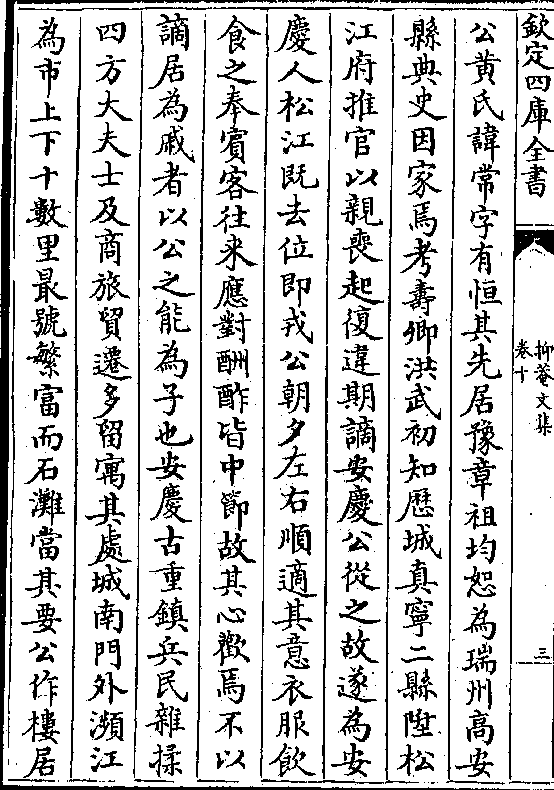 欽定四庫全書
抑菴文集
卷十
三
公黄氏諱常字有恒其先居豫章祖均恕為瑞州高安
縣典史因家焉考壽卿洪武初知歷城真寧二縣陞松
江府推官以親喪起復違期謫安慶公從之故遂為安
慶人松江既去位即戎公朝夕左右順適其意衣服飲
食之奉賓客往来應對酬酢皆中節故其心歡焉不以
謫居為戚者以公之能為子也安慶古重鎮兵民雜揉
四方大夫士及商旅貿遷多留寓其處城南門外瀕江
為市上下十數里最號繁富而石灘當其要公作樓居